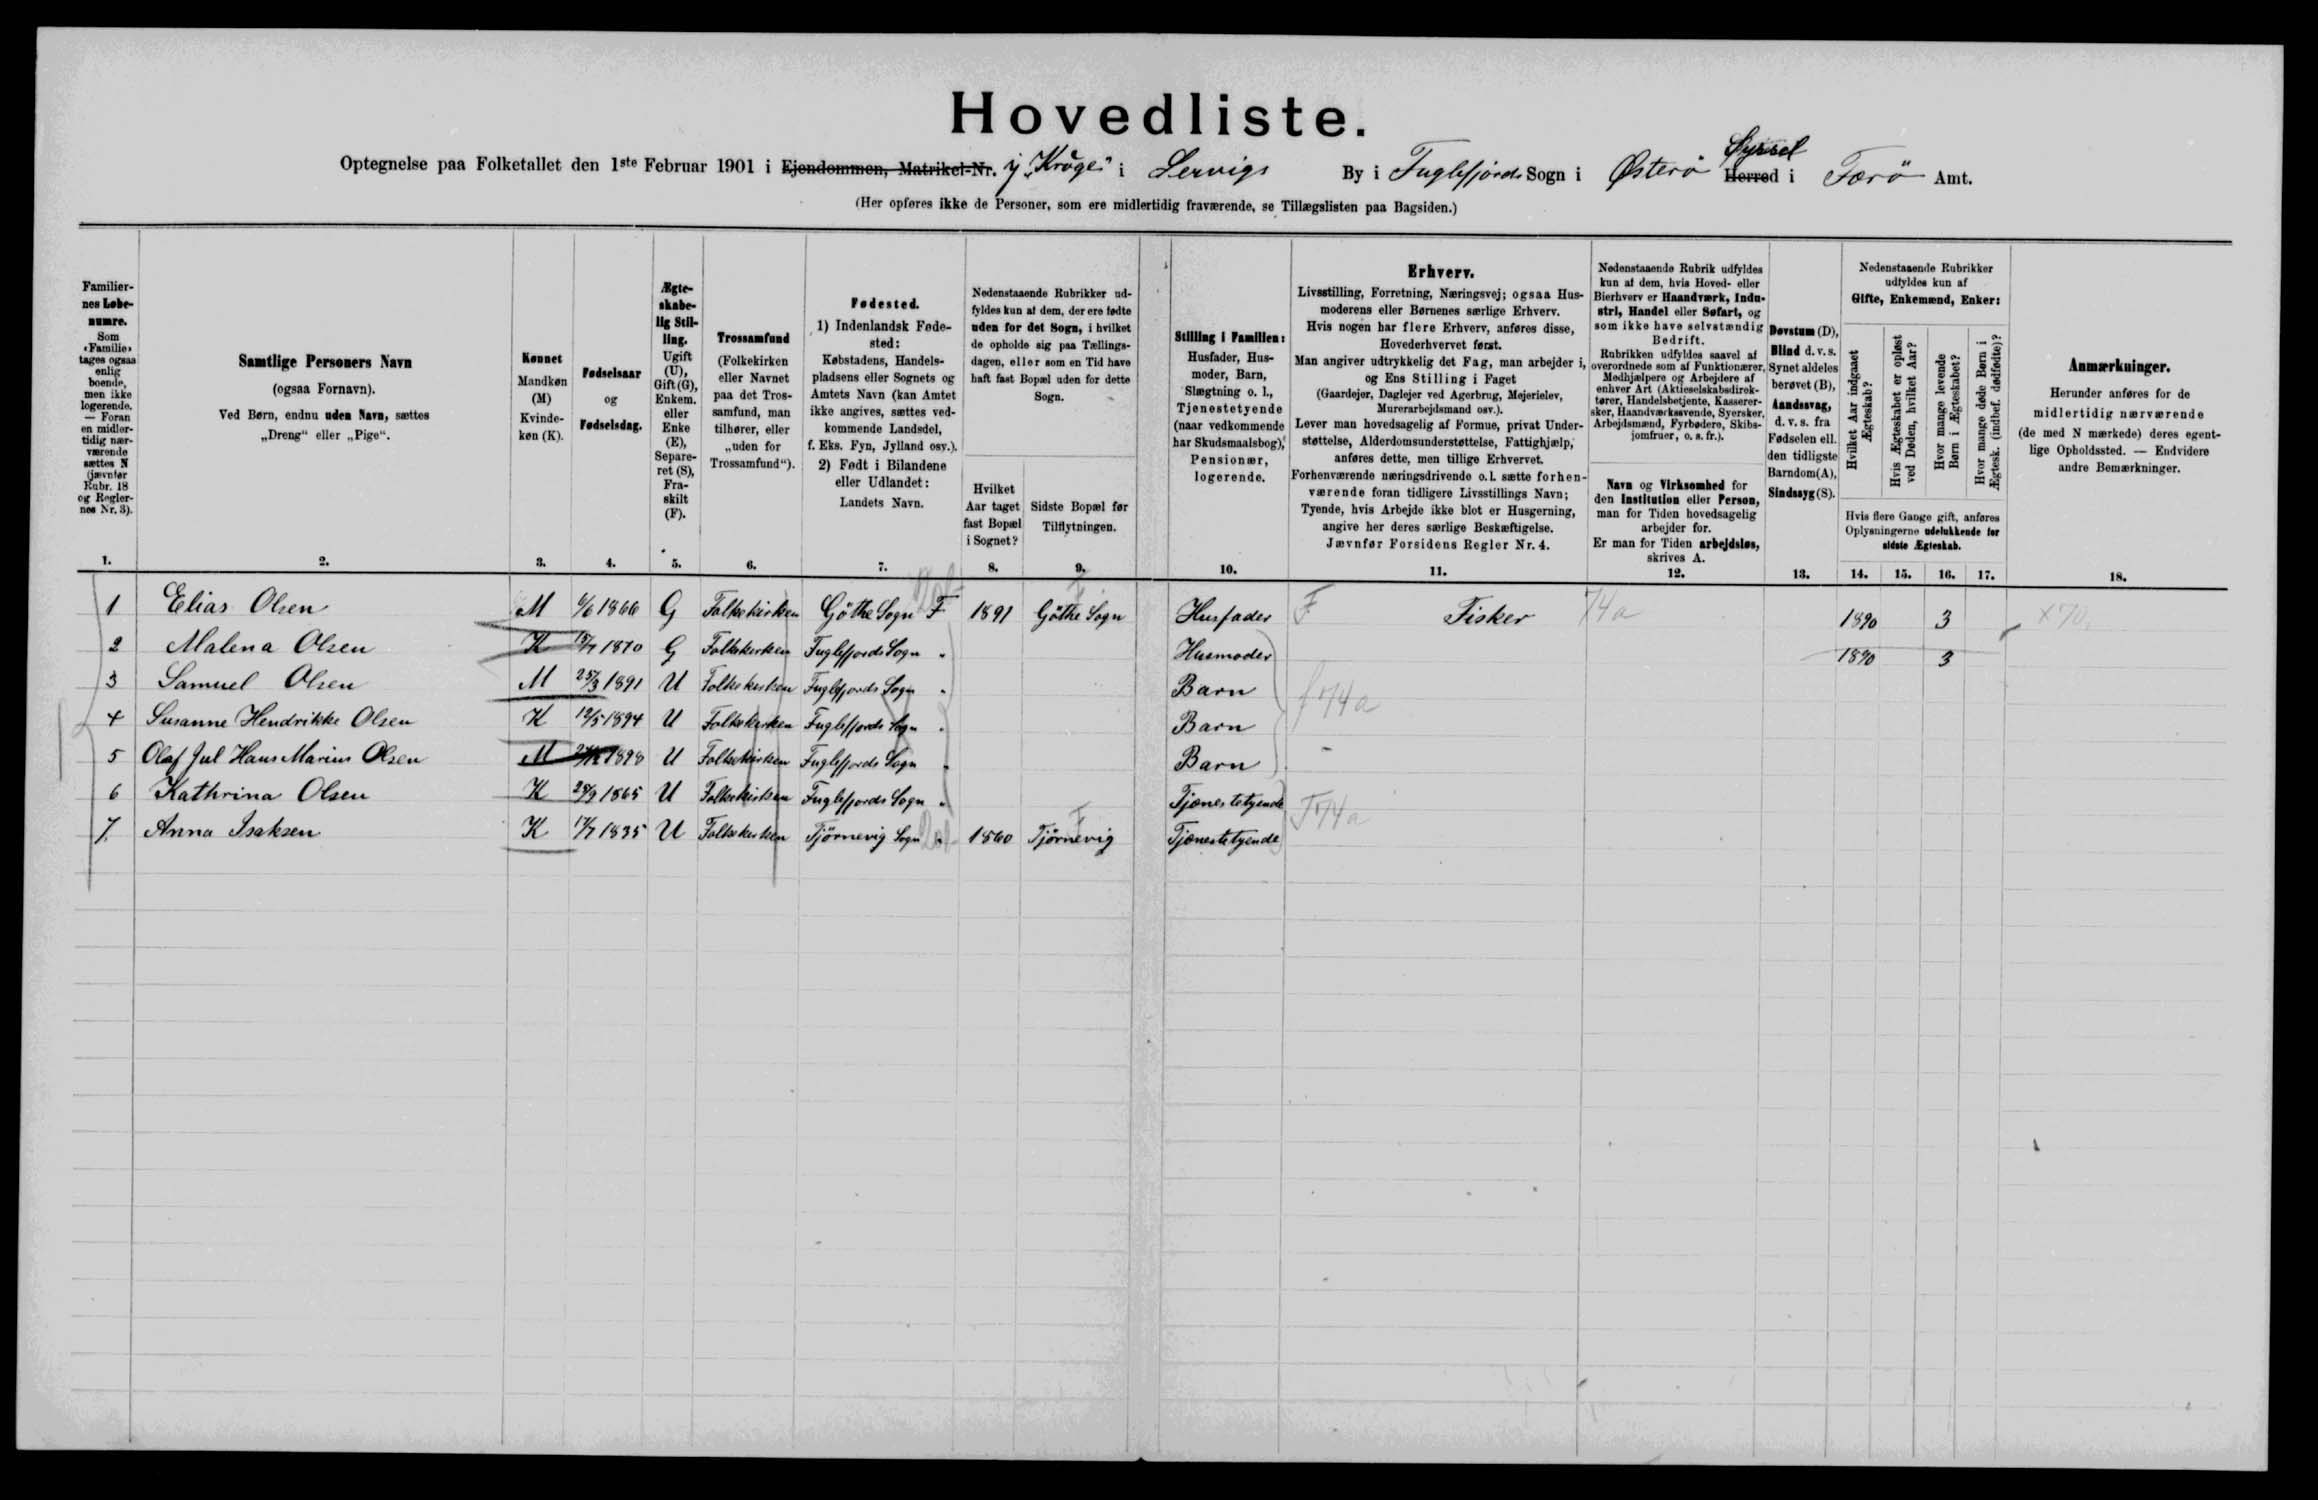 Hovedliste.
Optegnelse paa Folketallet den 1ste Februar 1901 i Ejendommen, Matrikel-Nr. ij „Kroge" i Lervigs By i Fuglefjords Sogn i Østerö Herred Syssel i Færö Amt.
(Her opføres ikke de Personer, som ere midlertidig fraværende, se Tillægslisten paa Bagsiden.)
Familiernes Løbenumre. Som «Familie» tages ogsaa enlig boende, men ikke logerende. — Foran en midlertidig nærværende sættes N (jævnfør Rubr. 18 og Reglernes Nr. 3).
Samtlige Personers Navn
(ogsaa Fornavn).
Ved Børn, endnu uden Navn, sættes
„Dreng" eller „Pige".
Kønnet
Mandkøn (M)
Kvindekøn (K).
Fødselsaar og Fødselsdag.
Ægteskabelig Stilling. Ugift (U), Gift (G), Enkem. eller Enke (E), Separeret (S), Fraskilt (F).
Trossamfund
(Folkekirken eller Navnet paa det Trossamfund, man tilhører, eller „uden for Trossamfund").
Fødested.
1) Indenlandsk Fødested: Købstadens, Handelspladsens eller Sognets og Amtets Navn (kan Amtet ikke angives, sættes vedkommende Landsdel, f. Eks. Fyn, Jylland osv.).
2) Født i Bilandene eller Udlandet: Landets Navn.
Nedenstaaende Rubrikker udfyldes kun af dem, der ere fødte uden for det Sogn, i hvilket de opholde sig paa Tællingsdagen, eller som en Tid have haft fast Bopæl uden for dette Sogn.
Hvilket Aar taget fast Bopæl i Sognet?
Sidste Bopæl før Tilflytningen.
Stilling i Familien:
Husfader, Husmoder, Barn, Slægtning o. l., Tjenestetyende (naar vedkommende har Skudsmaalsbog), Pensionær, logerende.
Erhverv.
Livsstilling, Forretning, Næringsvej; ogsaa Husmoderens eller Børnenes særlige Erhverv.
Hvis nogen har flere Erhverv, anføres disse, Hovederhvervet først.
Man angiver udtrykkelig det Fag, man arbejder i, og Ens Stilling i Faget
(Gaardejer, Daglejer ved Agerbrug, Mejerielev, Murerarbejdsmand osv.).
Lever man hovedsagelig af Formue, privat Understøttelse, Alderdomsunderstøttelse, Fattighjælp, anføres dette, men tillige Erhvervet.
Forhenværende næringsdrivende o. l. sætte forhenværende foran tidligere Livsstillings Navn; Tyende, hvis Arbejde ikke blot er Husgerning, angive her deres særlige Beskæftigelse.
Jævnfør Forsidens Regler Nr. 4.
Nedenstaaende Rubrik udfyldes kun af dem, hvis Hoved- eller Bierhverv er Haandværk, Industri, Handel eller Søfart, og som ikke have selvstændig Bedrift.
Rubrikken udfyldes saavel af overordnede som af Funktionærer, Medhjælpere og Arbejdere af enhver Art (Aktieselskabsdirektører, Handelsbetjente, Kasserersker, Haandværkssvende, Syersker, Arbejdsmænd, Fyrbødere, Skibsjomfruer, o. s. fr.).
Navn og Virksomhed for den Institution eller Person, man for Tiden hovedsagelig arbejder for.
Er man for Tiden arbejdsløs, skrives A.
Døvstum (D), Blind d. v. s. Synet aldeles berøvet (B), Aandssvag, d. v. s. fra Fødselen ell. den tidligste Barndom (A), Sindssyg (S).
Nedenstaaende Rubrikker udfyldes kun af Gifte, Enkemænd, Enker:
Hvilket Aar indgaaet Ægteskab?
Hvis Ægteskabet er opløst ved Døden, hvilket Aar?
Hvor mange levende Børn i Ægteskabet?
Hvor mange døde Børn i Ægtesk. (indbef. dødfødte)?
Hvis flere Gange gift, anføres Oplysningerne udelukkende for sidste Ægteskab.
Anmærkninger.
Herunder anføres for de midlertidig nærværende (de med N mærkede) deres egentlige Opholdssted. — Endvidere andre Bemærkninger.
1. 2. 3. 4. 5. 6. 7. 8. 9. 10. 11. 12. 13. 14. 15. 16. 17. 18.
1 Elias Olsen M 6/6 1866 G Folkekirken Göthe Sogn F 1891 Göthe Sogn Husfader F Fisker 74a 1890 3 x70.
2 Malena Olsen K 1870 G Folkekirken Fuglefjords Sogn " Husmoder 1890 3
3 Samuel Olsen M 25/3 1891 U Folkekirken Fuglefjords Sogn " Barn f 74a
4 Susanne Hendrikke Olsen K 12/5 1894 U Folkekirken Fuglefjords Sogn " Barn
5 Olaf Jul Hans Marius Olsen M 1898 U Folkekirken Fuglefjords Sogn " Barn
6 Kathrina Olsen K 29/9 1865 U Folkekirken Fuglefjords Sogn " Tjænestetyende F74a
7. Anna Isaksen K 17/7 1835 U Folkekirken Tjörnevig Sogn " 1860 Tjörnevig Tjænestetyende